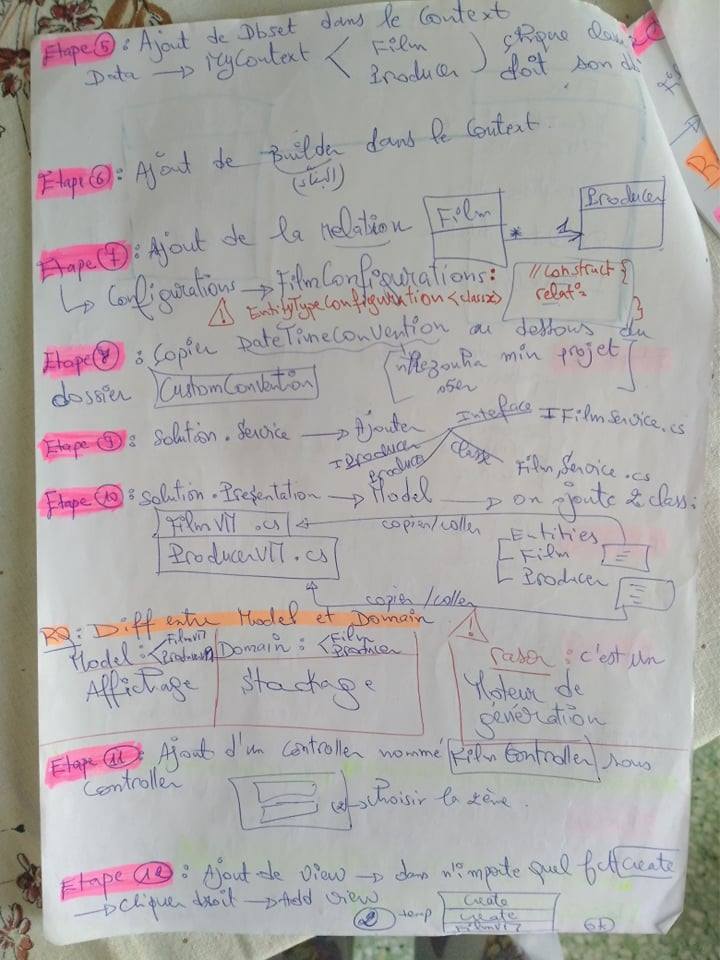 Etape 5 : Ajout de Dbset dans le Context
Data → MyContext < Film
Producer
doit son
Etape 6 : Ajout de Builder dans le Context.
(البناء)
Etape 7 : Ajout de la Relation
Film * 1 Producer
↳ Configurations → FilmConfigurations:
⚠ EntityTypeConfiguration<classx>
// Construct {
relat°
}
Etape 8 : Copier DateTimeConvention au dessous du
dossier CustomConvention
[nhezouha min projet
Etape 9 : Solution.Service → Ajouter
Interface IFilmService.cs
IProducer
Produce
Classe Film,Service.cs
Etape 10 : Solution.Presentation → Model → on ajoute 2 class:
FilmVM.cs
ProducerVM.cs
copier/coller
Entities
Film
Producer
copier/coller
RQ : Diff entre Model et Domain
Model : < FilmVM
ProducerVM
Affichage
Domain : < Film
Producer
Stockage
⚠
rasor : c'est un
Moteur de
génération
Etape 11 : Ajout d'un Controller nommé Film Controller sous
Controller
→ Choisir la 2ème.
Etape 12 : Ajout de View → dans n'importe quel fct Create
→ cliquer droit → Add View
2 temp
Create
Create
FilmVM